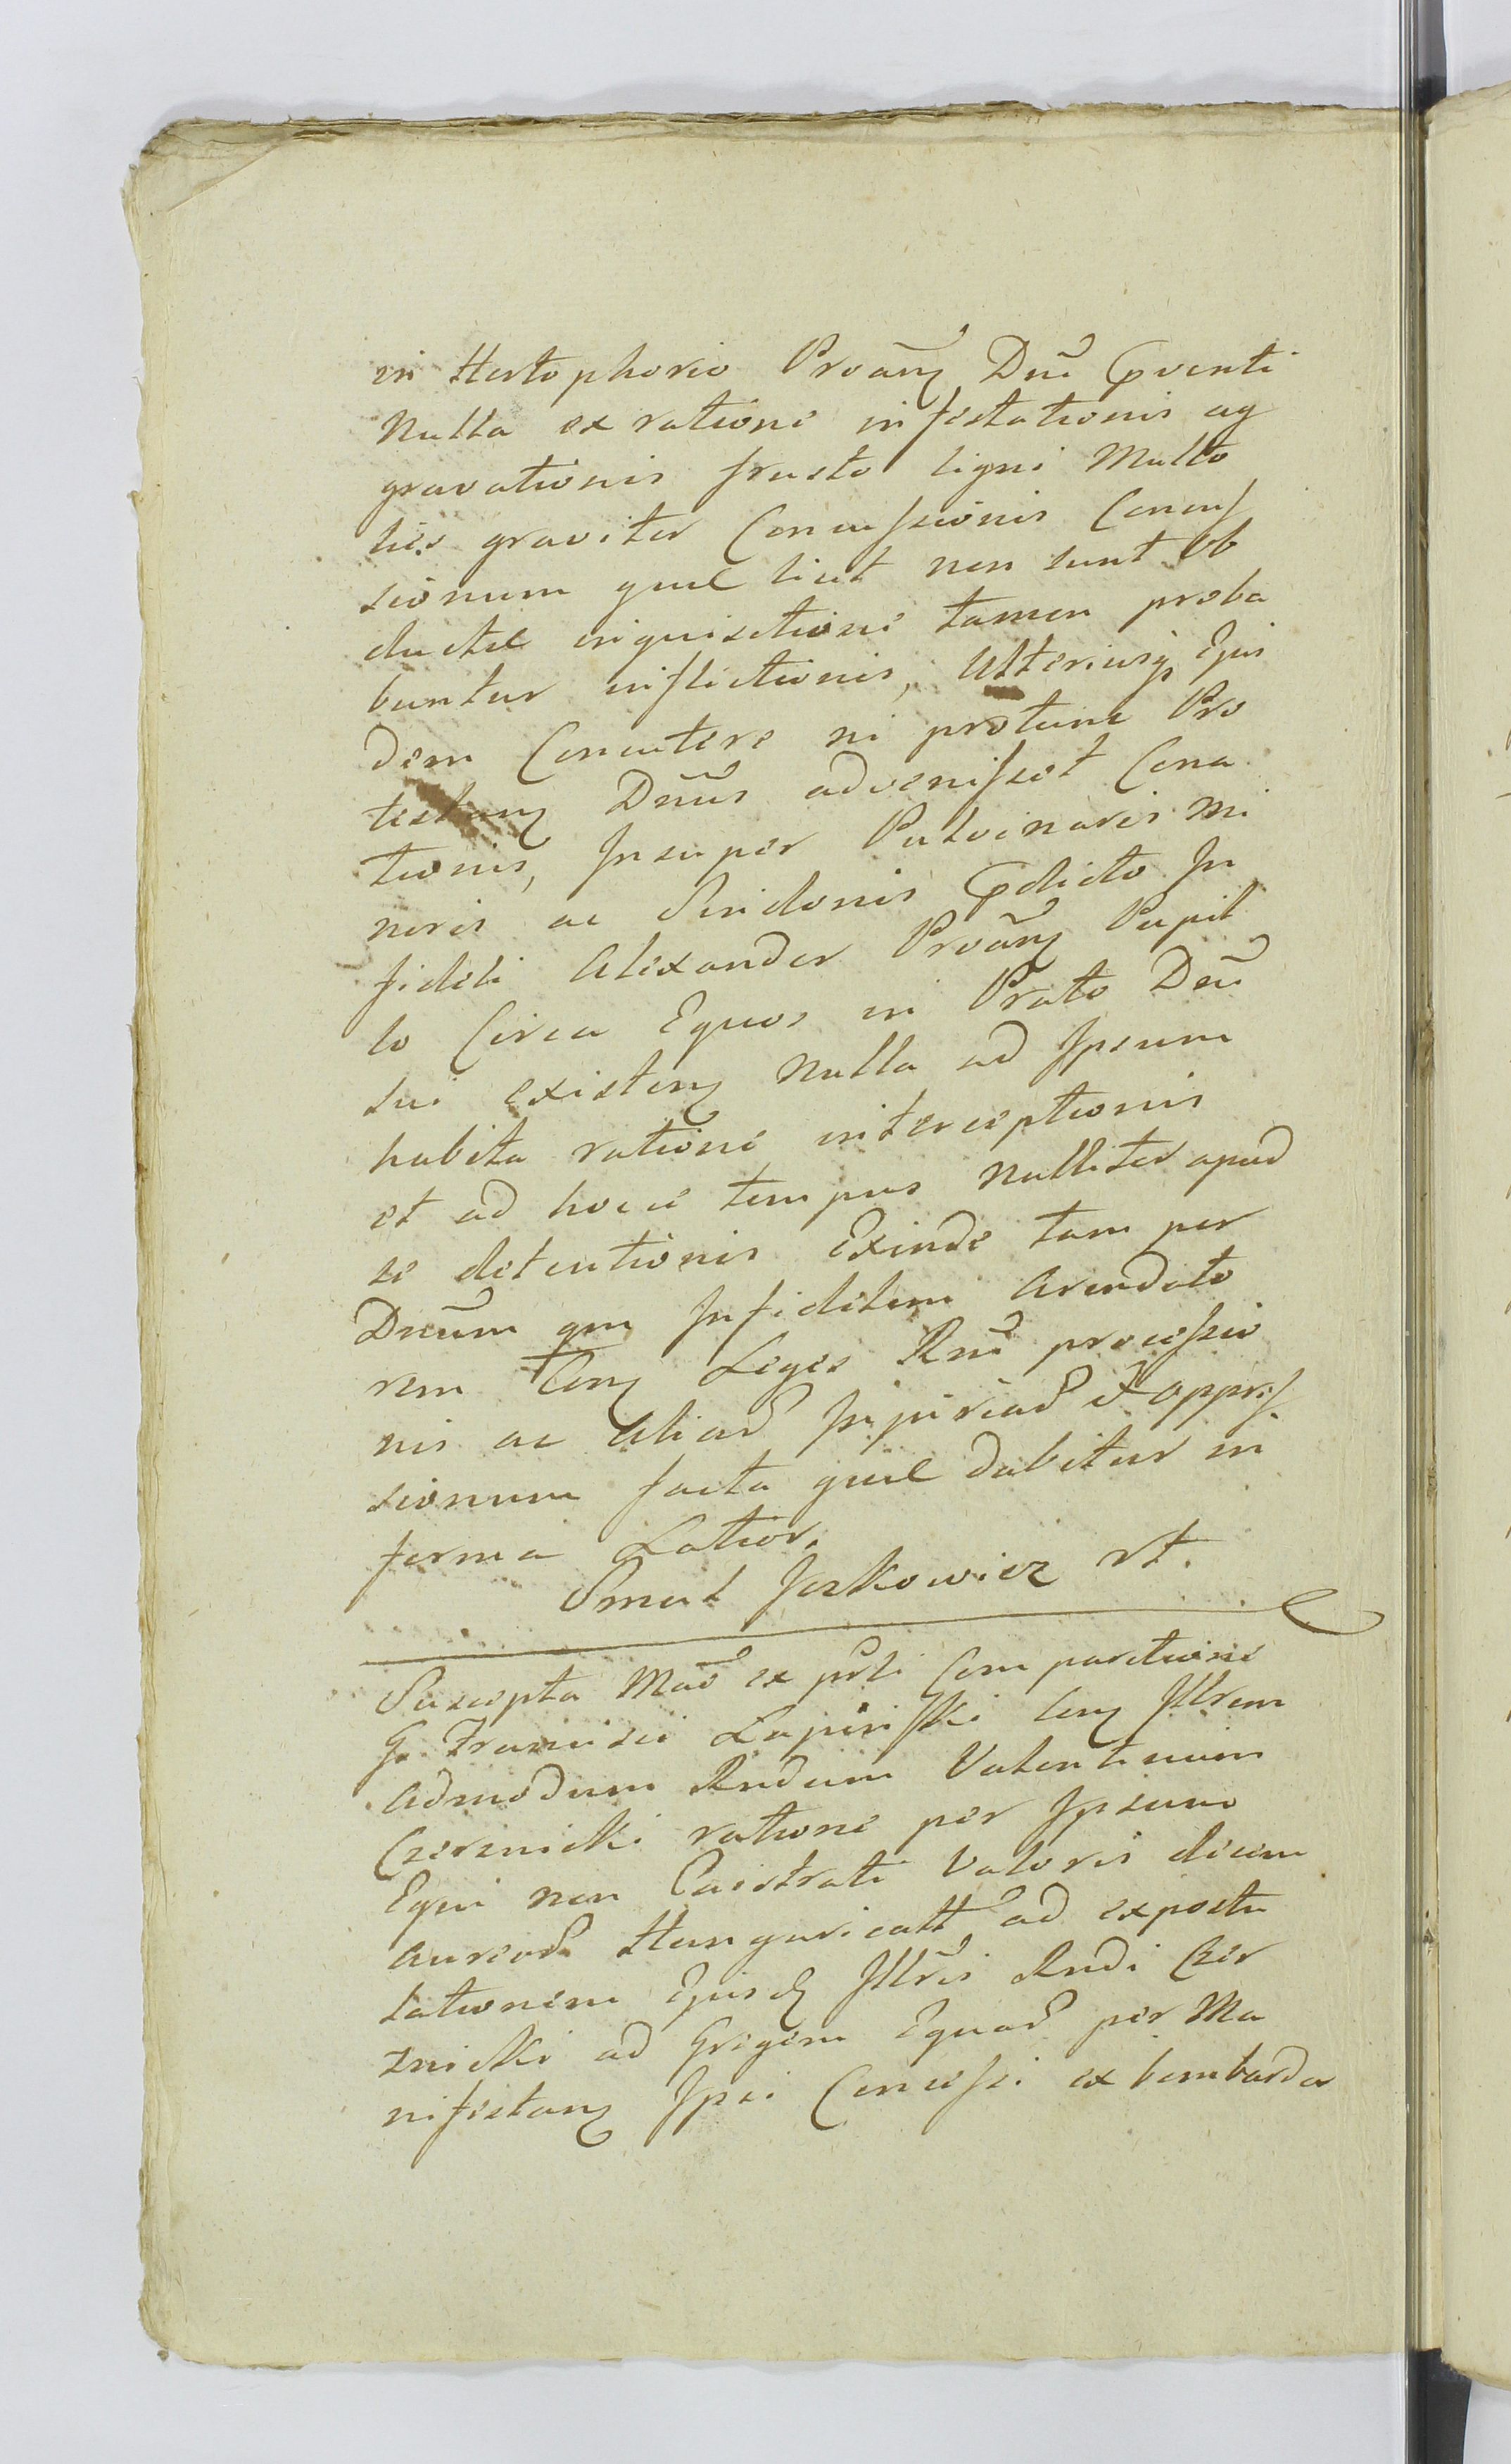 in Hertophorio Proãnʒ Dnĩ Cõventi
Nulla ex ratione infestationis ag
gravationis frusto ligni Multo
ties graviter Concussionis Concuſ
sionum quae licet non sunt ob
ductae inquisitione tamen proba
buntur inflictionis, Ulteriusq Ejus
dem Concutere ni protunc Pro
testanʒ Dnũs advenisset Cona
tionis, Insuper Pulvinaris Mi
noris ac Sindonis Cõdicto In
fideli Alexander Proãnʒ Pupil
lo Circa Equos in Prato Dnĩ
sui existenʒ Nulla ad Ipsum
habita ratione interceptionis
et ad hocce tempus Nulliter apud
se detentionis Exinde tam per
Dnũm qm Infidelem Arendato
rem Conʒ Leges Rnĩ processio
nis ac Aliar Injuriar et oppreſ
sionum facta quae dabitur in
forma Latior.
Smul Joskowicz rt.
Suscepta Maõ ex pñti Comparitione
G. Francisci Lapinſki Conʒ Illrem
Admodum Rndum Valentinum
Czerznicki ratione per Ipsum
Equi non Castrati Valoris decem
Aureor Hungaricall ad expostu
lationem Ejusd Illris Rndi Czer
znicki ad Gregem Equar per Ma
nifestanʒ Ipsi Concessi ex bombarda